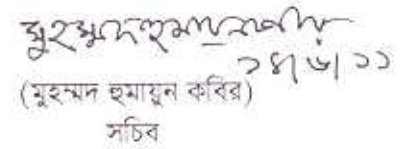 ১৪/৬/১১
(মুহম্মদ হুমায়ুন কবির)
সচিব